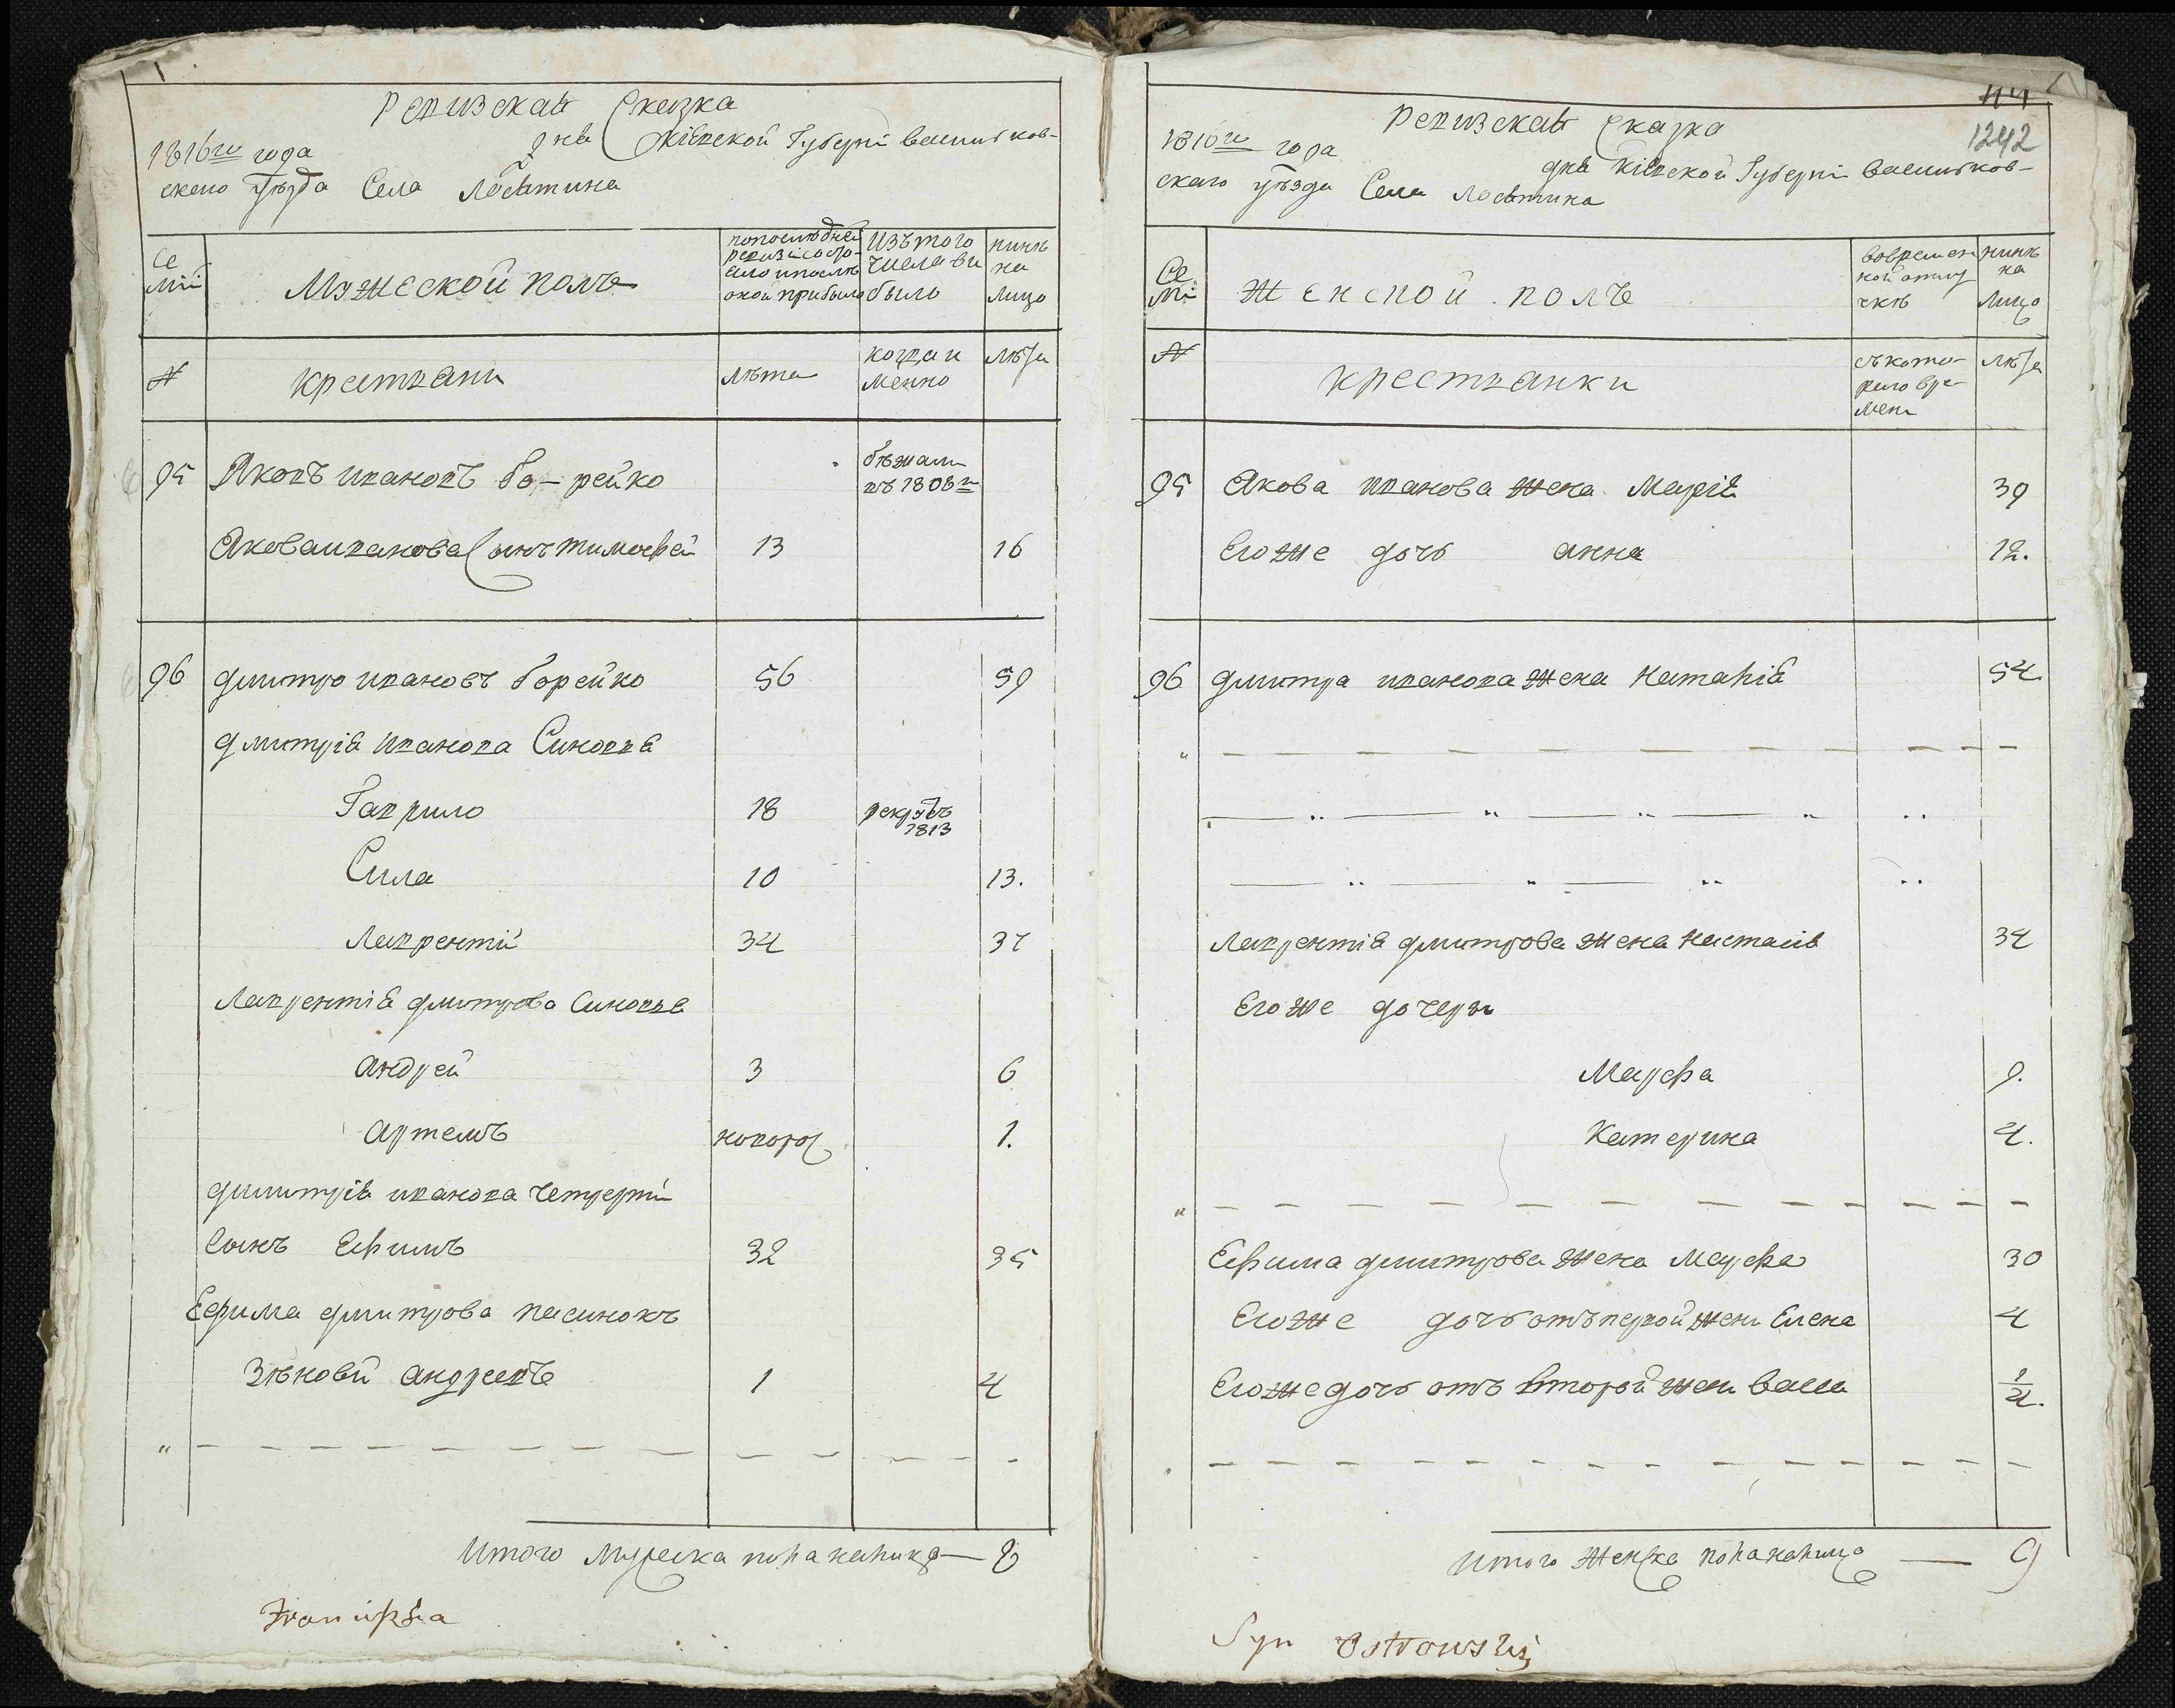 Ревизская Сказка
1816го года дня Кіевской Губерні васильков-
скаго уѣзда Села Лосятина
Се
мії
Мужеской полъ
попослѣдней
ревизіи состо-
яло и послѣ
оной прибыло
Изътого
числа вы
было
нинѣ
на
лицо
№
крестяни
лѣта
когда и
менно
лѣта
95 Яковъ ивановъ бо-рейко бѣжалъ
въ 1808го
Якова иванова Синъ тимофей 13 16
96 дмитро ивановъ борейко 56 59
дмитрія иванова Синовя
Гаврило 18 рекрутъ
1813
Сила 10 13.
Лаврентій 34 37
Лаврентія дмитрова Синовья
андрей 3 6
артемъ новорож 1.
дмитрія иванова четверти
Синъ Ефимъ 32 35
Ефима дмитрова пасинокъ
Зѣновій андреевъ 1 4
Итого Мужеска пола налицо — 8
Franciszka
144
1242
Ревизская Сказка
1816го года дня Кіевской Губерні васильков-
скаго уѣзда Села Лосятина
Се
мі
Женской полъ
вовремен
ной отлу
чкѣ
нинѣ
на
лицо
№
крестянки
съкото-
рого вре-
мени
лѣта
95 Якова иванова жена Марія 39
Егоже дочь анна 12.
96 дмитра иванова жена Наталія 54
Лаврентія дмитрова жена Настасія 34
Егоже дочери
Марфа 9.
Катерина 4.
Ефима дмитрова жена Марфа 30
Егоже дочь отъ первой жени Елена 4
Егоже дочь отъ второй жени васса 1/2.
Итого женска пола налицо — 9
Syn Ostrowskij